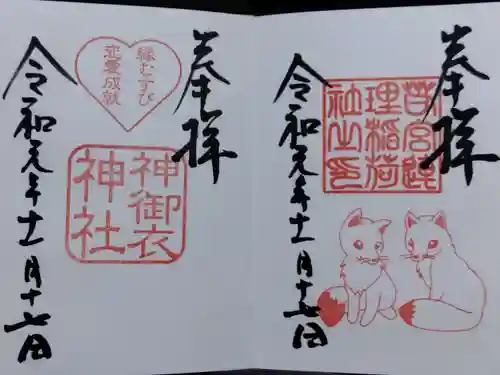 奉拝
理稲荷
社之印
令和元年十一月十七日
奉拝
縁むすび
恋愛成就
神御衣
神社
令和元年十一月十七日